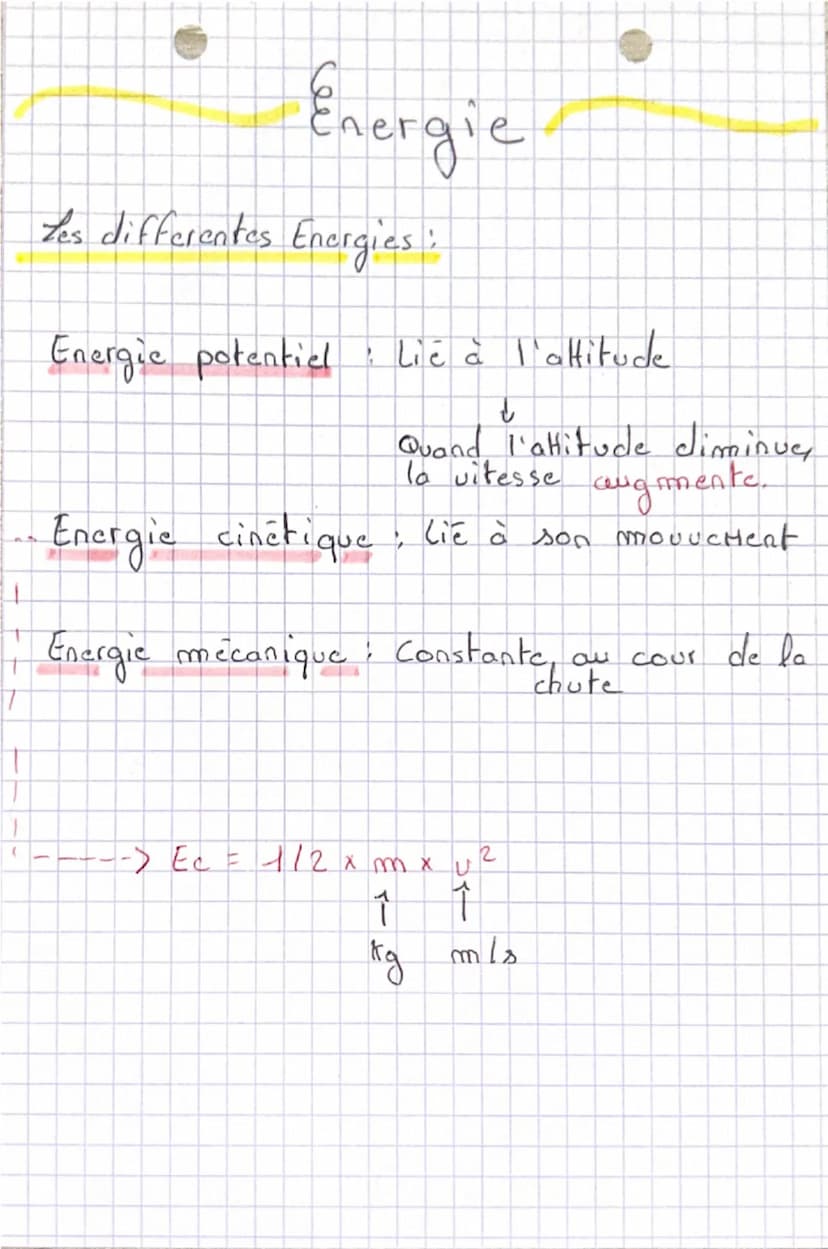 Énergie
Les differentes Energies :
Energie potentiel : Lié à l'altitude
↓
Quand l'altitude diminue,
la vitesse augmente.
Energie cinétique : Lié à son mouvement
Energie mécanique : Constante, au cour de la
chute
-----> Ec = 1/2 x m x v²
↑ ↑
kg m/s